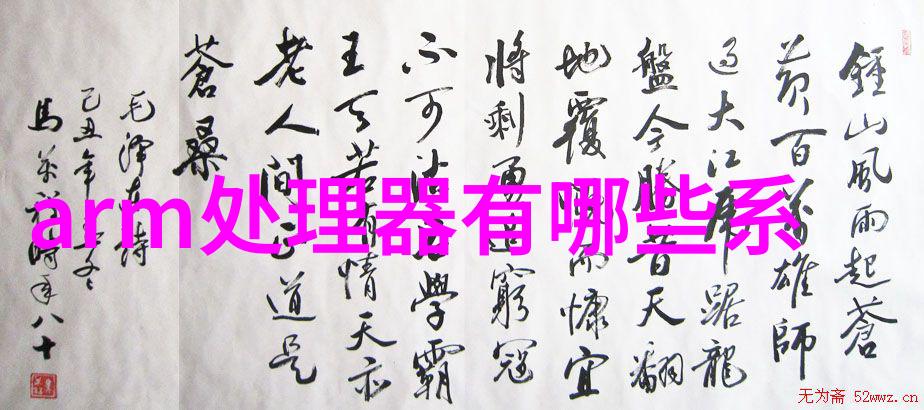 鍾山風雨起蒼
黄百萬雄師
过大江虎踞龍
盤今勝昔天翻
地覆慨而慷宜
將剩勇追窮寇
不可沽名學霸
王天若有情天亦
老人間正道是
蒼桑
毛澤东詩
己丑年冬
馬萬祺時年八十
arm处理器有哪些系
无为斋 52wwz.cn